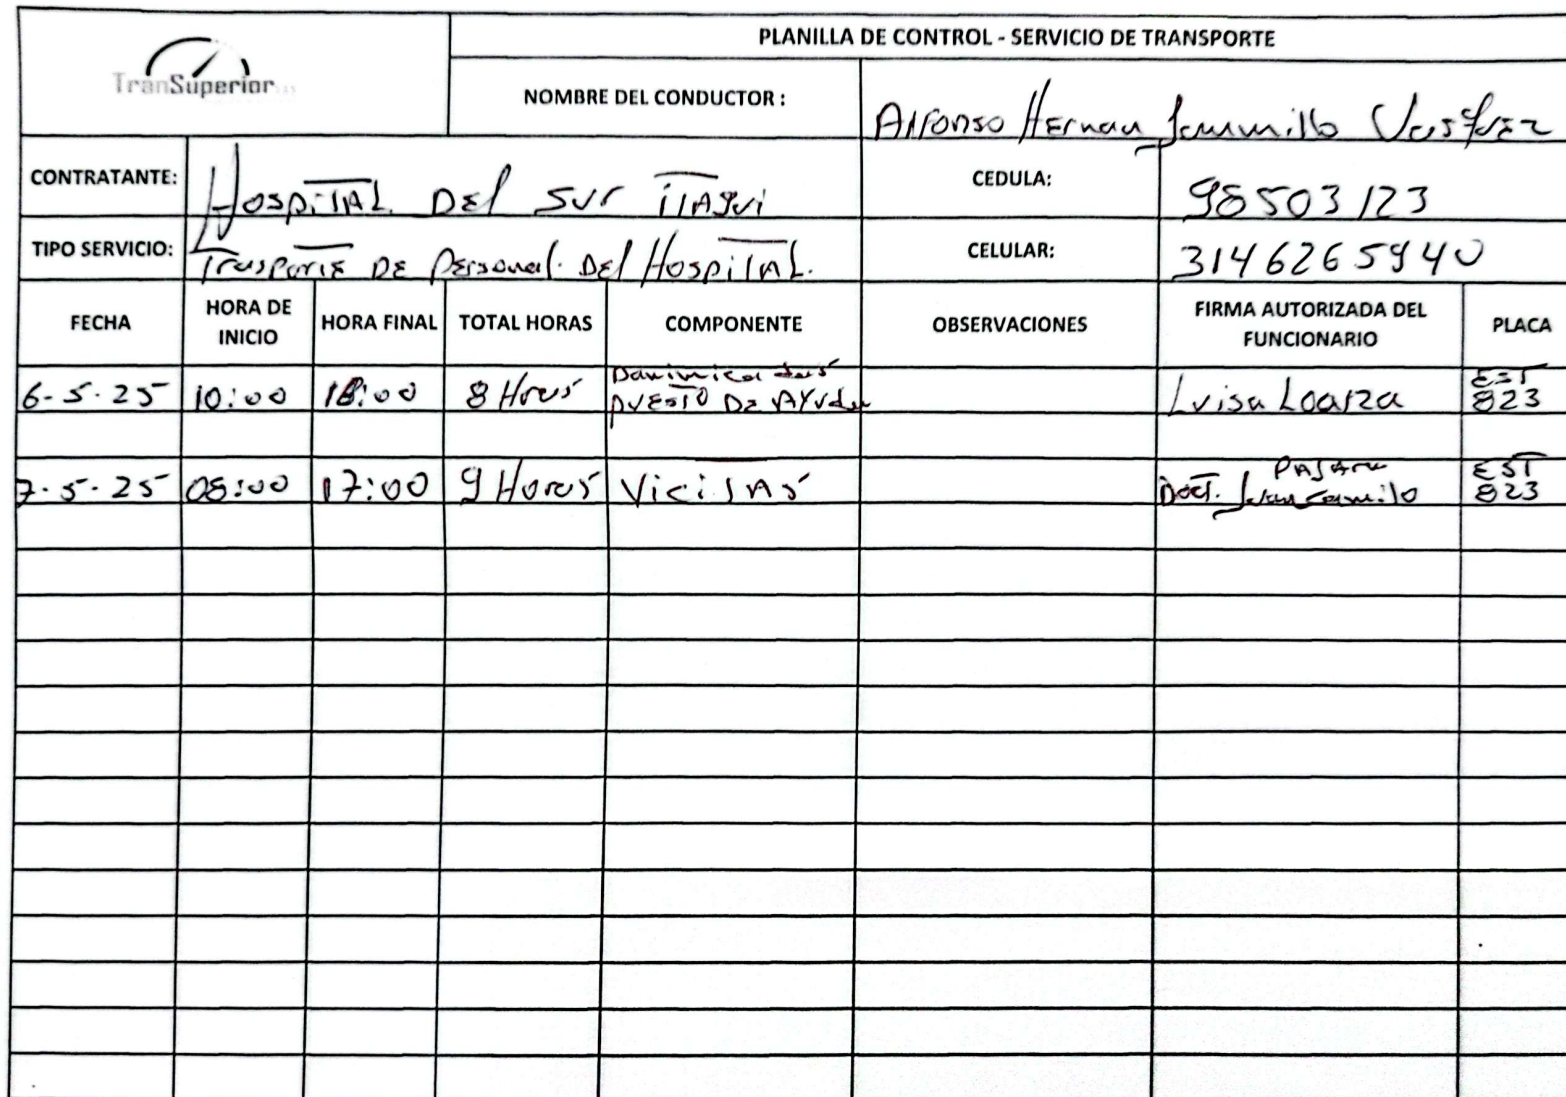 PLANILLA DE CONTROL - SERVICIO DE TRANSPORTE
TranSuperior
NOMBRE DEL CONDUCTOR :
Alfonso Hernan Jaramillo Vasquez
CONTRATANTE:
Hospital Del sur itagui
CEDULA:
98503123
TIPO SERVICIO:
Trasporte DE Personal. Del Hospital.
CELULAR:
3146265940
FECHA
HORA DE
INICIO
HORA FINAL
TOTAL HORAS
COMPONENTE
OBSERVACIONES
FIRMA AUTORIZADA DEL
FUNCIONARIO
PLACA
6-5-25
10:00
18:00
8 Horas
PUESTO DE AYUda
Luisa Loaiza
EST
823
7-5-25
08:00
17:00
9 Horas
Vicitas
Doct. Juan Camilo
EST
823